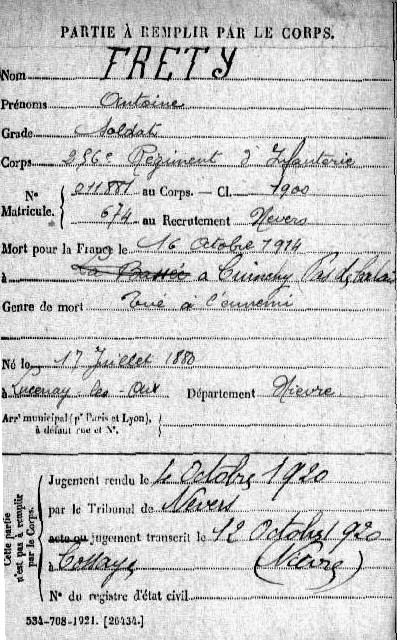 PARTIE À REMPLIR PAR LE CORPS.
Nom FRETY
Prénoms Antoine
Grade Soldat
Corps 256e Régiment d'Infanterie
N° Matricule. 011881 au Corps. — Cl. 1900
674 au Recrutement Nevers
Mort pour la France le 16 Octobre 1914
à La Bassée a Cuinchy Pas de Calais
Genre de mort Tué à l'ennemi
Né le 17 Juillet 1880
à Lucenay les-Aix Département Nièvre
Arrt municipal (pr Paris et Lyon), à défaut rue et N°.
Cette partie n'est pas à remplir par le Corps.
Jugement rendu le Octobre 1920
par le Tribunal de Nevers
acte ou jugement transcrit le 12 Octobre 1920
à Cossaye (Nièvre)
N° du registre d'état civil
534-708-1921. [26434.]